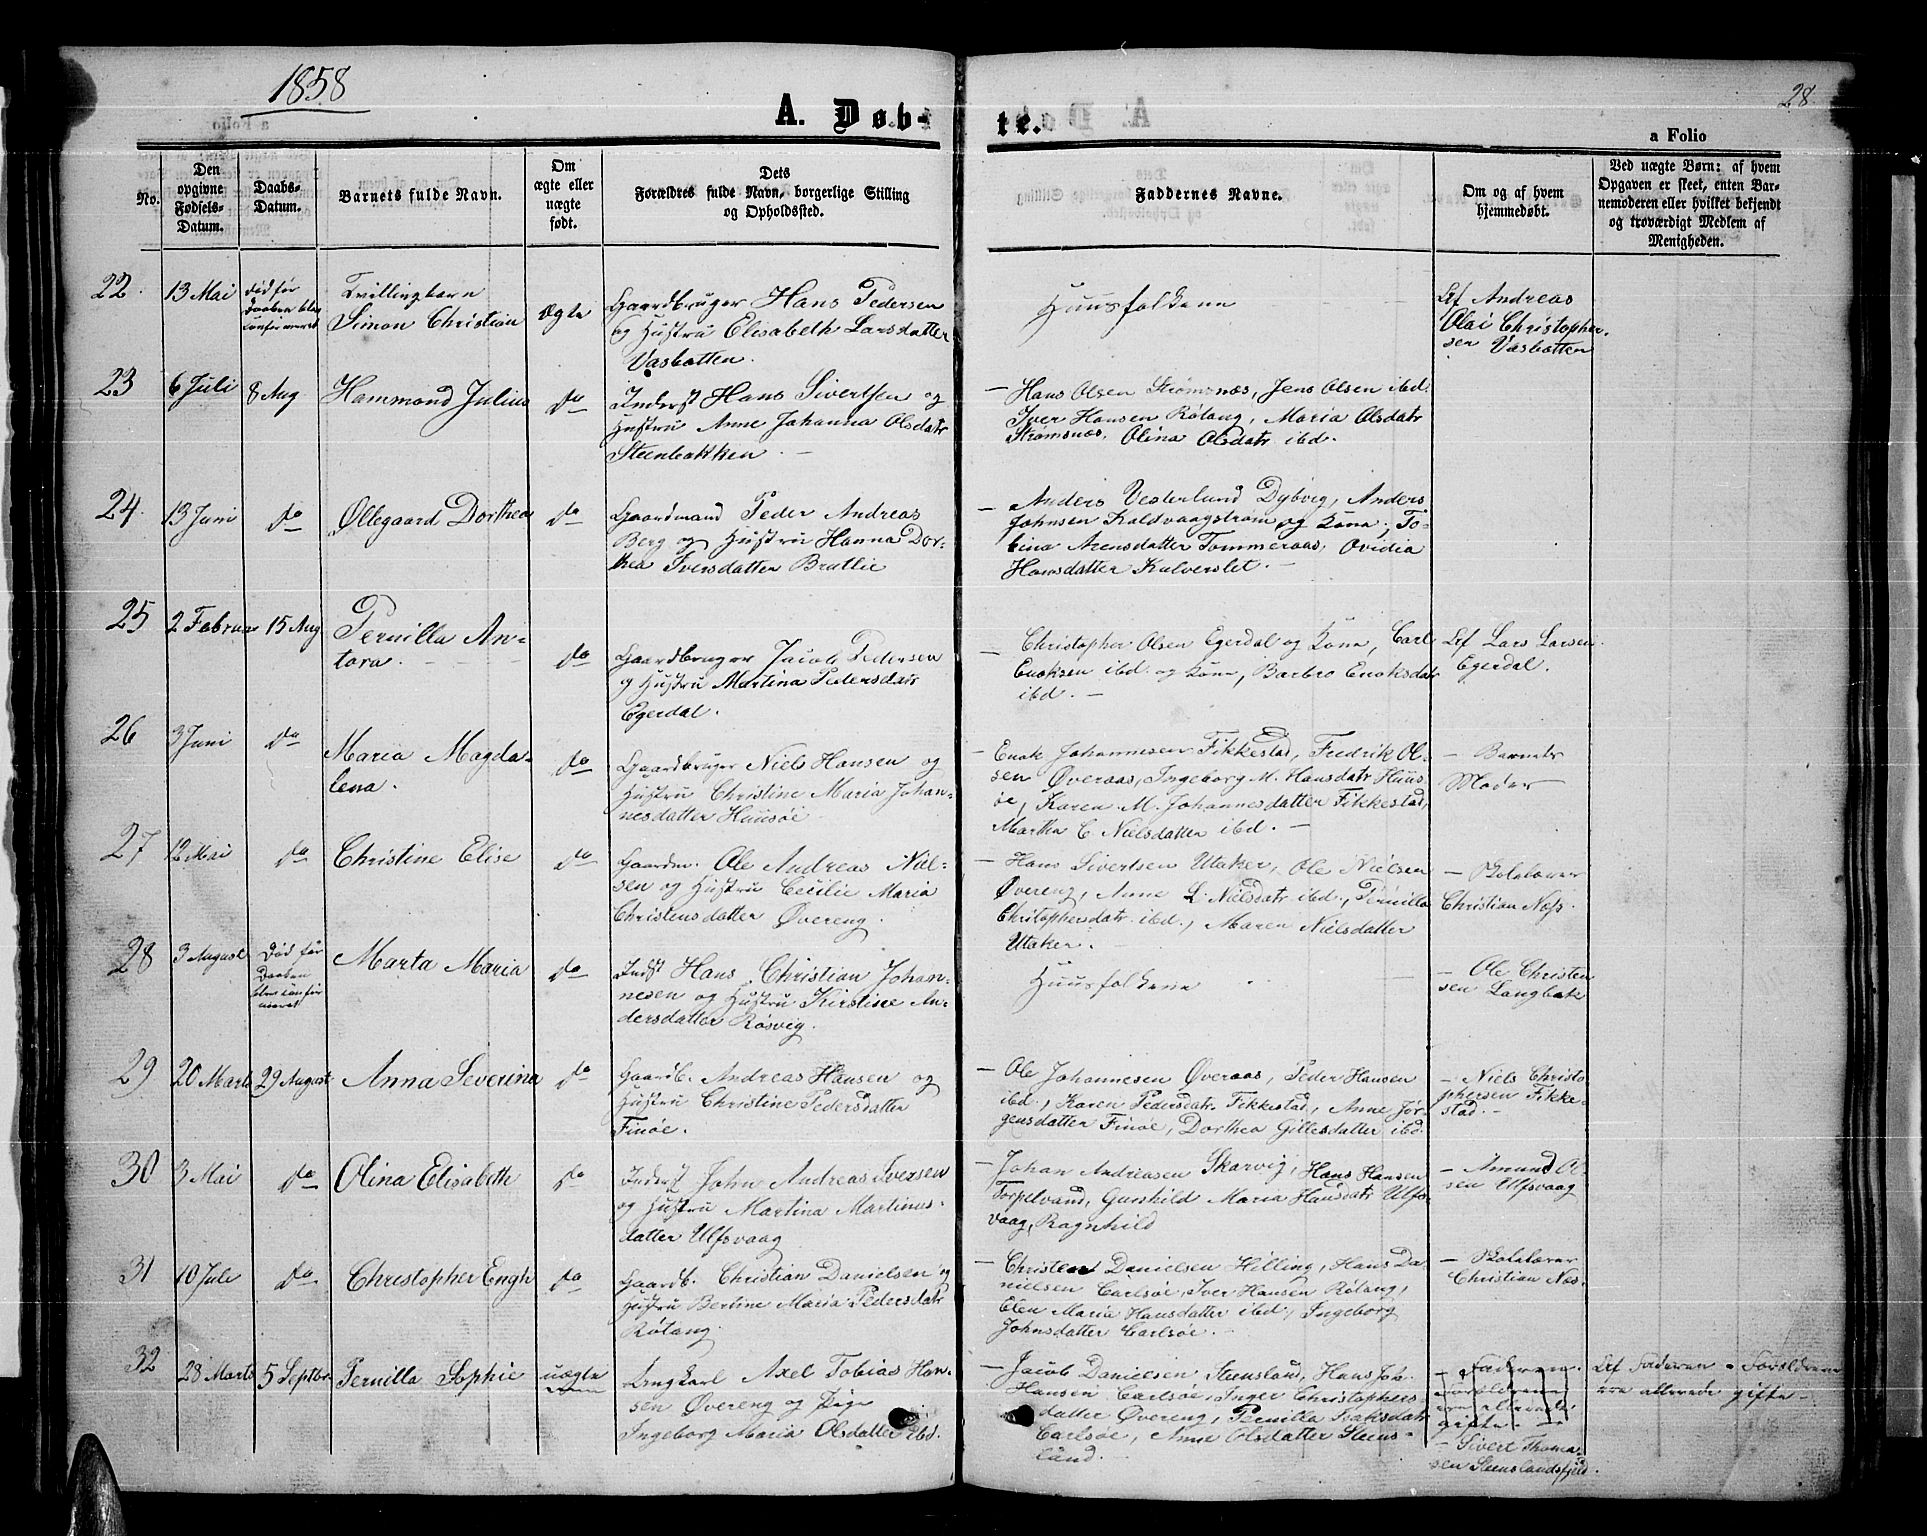 1858
28.
A. Døb-
te.
a Folio
No.
Den
opgivne
Fødsels-
Datum.
Daabs-
Datum.
Barnets fulde Navn.
Om
ægte eller
uægte
født.
Dets
Forældres fulde Navn, borgerlige Stilling
og Opholdssted.
Faddernes Navne.
Om og af hvem
hjemmedøbt.
Ved uægte Børn: af hvem
Opgaven er skeet, enten Bar-
nemoderen eller hvilket bekjendt
og troværdigt Medlem af
Menigheden.
22. 13 Mai
død før
Daaben blev
confirmeret
Tvillingbarn
Simon Christian
Ægte
Gaardbruger Hans Pedersen
og Hustru Elisabeth Larsdatter
Vasbotten.
Huusfolkene
af Andreas
Olai Christopher-
sen Vasbotten
23 6 Juli 8 Aug Hammond Julius do
Inderst Hans Sivertsen og
Hustru Anne Johanna Olsdatr
Steenbakken –
– Hans Olsen Strømsnæs, Jens Olsen ibd.
Iver Hansen Røtang, Maria Olsdatr
Strømsnæs, Olina Olsdatr ibd.
24. 13 Juni do Øllegaard Dorthea do
Gaardmand Peder Andreas
Berg og Hustru Hanna Dor-
thea Iversdatter Bratlie
– Anders Vesterlund Dybvig, Anders
Johnsen Kaldvaagstrøm og Kone, To-
bina Arensdatter Tommeraas, Ovidia
Hansdatter Kalverslet. –
25 2 Februar 15 Aug Pernilla An-
tora. do
Gaardbruger Jacob Pedersen
og Hustru Martina Pedersdatr
Egerdal.
– Christopher Olsen Egerdal og Kone, Carl
Enoksen ibd. og Kone, Barbro Enoksdatr
ibd. –
af Lars Larsen
Egerdal.
26 3 Juni do Maria Magda-
lena. do
Gaardbruger Niels Hansen og
Hustru Christine Maria Johan-
nesdatter Huusøe
– Enok Johannesen Fikkestad, Fredrik Ol-
sen Øveraas, Ingeborg M. Hansdatr Huus-
øe, Karen M. Johannesdatter Fikkestad,
Martha C Nielsdatter ibd. –
– Barnets
Moder
27 12 Mai do Christine Elise do
Gaardm. Ole Andreas Niel-
sen og Hustru Cecilie Maria
Christensdatter Øvereng.
– Hans Sivertsen Utaker, Ole Nielsen
Øvereng, Anne L. Nielsdatr ibd., Pernilla
Christophersdatr. ibd., Maren Nielsdatter
Utaker. –
– Skolelærer
Christian Næss.
28 3 August
Død før
Daaben
blev confir-
meret
Marta Maria do
Indst Hans Christian Johan-
nesen og Hustru Kirstine An-
dersdatter Røsvig.
Huusfolkene
– Ole Christen
sen Langbak
29 20 Marts 29 August Anna Severina do
Gaardb. Andreas Hansen og
Hustru Christine Pedersdatter
Finøe.
– Ole Johannesen Øveraas, Peder Hansen
ibd., Karen Pedersdatr. Fikkestad, Anne Jør-
gensdatter Finøe, Dorthea Gillesdatter ibd.
– Niels Christo
phersen Fikke-
stad. –
30 3 Mai do Olina Elisabeth do
Inderst John Andreas Iversen
og Hustru Martina Martinus-
datter Ulfsvaag
– Johan Andreasen Skarvig, Hans Hansen
Torpelvand, Gunhild Maria Hansdatr Ulfs-
vaag, Ragnhild
– Amund Ol-
sen Ulfsvaag
31 10 Juli do Christopher Engh do
Gaardb. Christian Danielsen og
Hustru Bertine Maria Pedersdatr
Røtang.
– Christen Danielsen Helling, Hans Da-
nielsen Carlsøe, Iver Hansen Røtang,
Elen Maria Hansdatter ibd., Ingeborg
Johnsdatter Carlsøe. –
– Skolelærer
Christian Næs
32 28 Marts 5 Septbr Pernilla Sophie uægte
Ungkarl Axel Tobias Han-
sen Øvereng og Pige
Ingeborg Maria Olsdatter ibd.
– Jacob Danielsen Steensland, Hans Joh.
Hansen Carlsøe, Inger Christophers-
datter Øvereng, Pernilla Isaksdatr
Carlsøe, Anne Olsdatter Steens-
land.
– Faderen.
Forældrene
ere allerede
gifte. –
– Sivert Thoma-
sen Steenslandsfjeld.
af Faderen – Forældrene
ere allerede gifte –